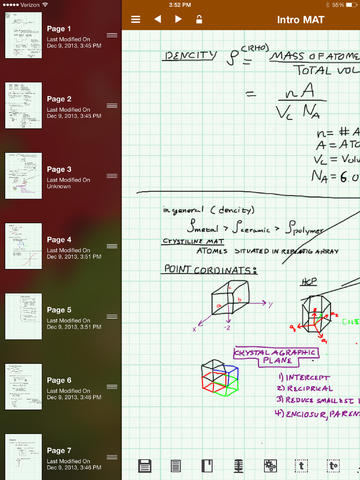 Verizon 3:52 PM 55%
Intro MAT
Page 1
Last Modified On
Dec 9, 2013, 3:45 PM
Page 2
Last Modified On
Dec 9, 2013, 3:45 PM
Page 3
Last Modified On
Unknown
Page 4
Last Modified On
Dec 9, 2013, 3:51 PM
Page 5
Last Modified On
Dec 9, 2013, 3:51 PM
Page 6
Last Modified On
Dec 9, 2013, 3:46 PM
Page 7
Last Modified On
Dec 9, 2013, 3:46 PM
DENCITY ρ (RHO) = MASS OF ATOMS
TOTAL VOL
= nA
VC NA
n= # A
A = ATO
VC = Volu
NA = 6.0
in general (dencity)
ρmetal > ρceramic > ρpolymer
CRYSTILINE MAT
ATOMS SITUATED IN REPEATIG ARRAY
POINT CORDINATS:
HCP
a b y
x -z
a1
CRYSTAL AGRAPHIC
PLANE
1) INTERCEPT
2) RECIPRICAL
3) REDUCE SMALLEST
4) ENCLOSUR, PAREN
t t